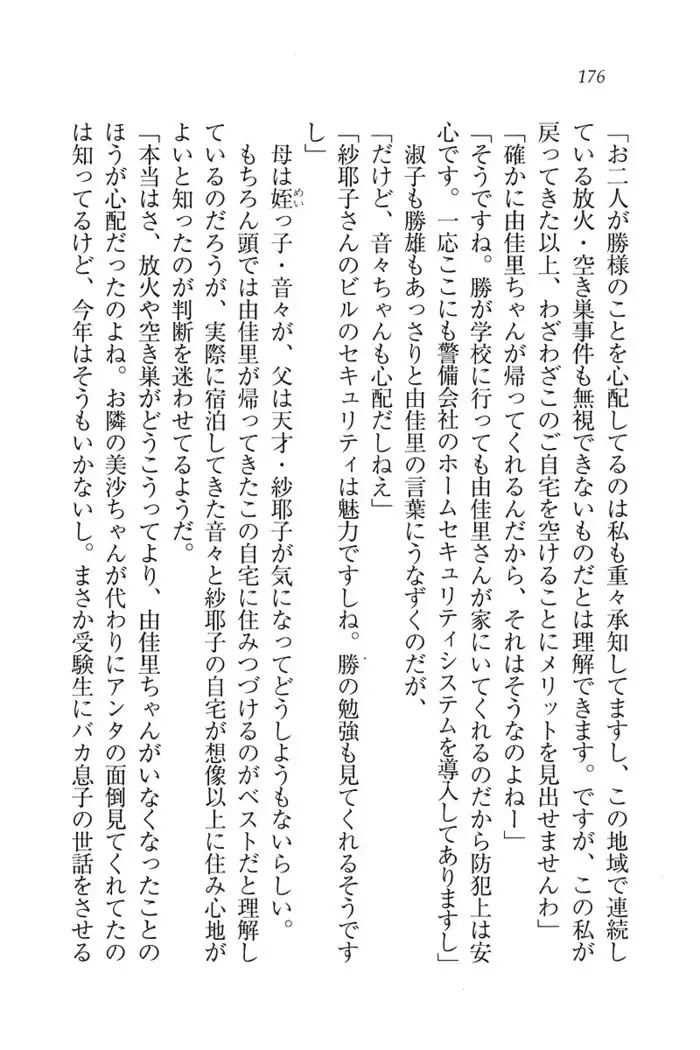 176
「お二人が勝様のことを心配してるのは私も重々承知してますし、この地域で連続し
ている放火・空き巣事件も無視できないものだとは理解できます。ですが、この私が
戻ってきた以上、わざわざこのご自宅を空けることにメリットを見出せませんわ」
「確かに由佳里ちゃんが帰ってくれるんだから、それはそうなのよねー」
「そうですね。勝が学校に行っても由佳里さんが家にいてくれるのだから防犯上は安
心です。一応ここにも警備会社のホームセキュリティシステムを導入してありますし」
淑子も勝雄もあっさりと由佳里の言葉にうなずくのだが、
「だけど、音々ちゃんも心配だしねえ」
「紗耶子さんのビルのセキュリティは魅力ですしね。勝の勉強も見てくれるそうです
し」
母は姪っ子・音々が、父は天才・紗耶子が気になってどうしようもないらしい。
もちろん頭では由佳里が帰ってきたこの自宅に住みつづけるのがベストだと理解し
ているのだろうが、実際に宿泊してきた音々と紗耶子の自宅が想像以上に住み心地が
よいと知ったのが判断を迷わせてるようだ。
「本当はさ、放火や空き巣がどうこうってより、由佳里ちゃんがいなくなったことの
ほうが心配だったのよね。お隣の美沙ちゃんが代わりにアンタの面倒見てくれてたの
は知ってるけど、今年はそうもいかないし。まさか受験生にバカ息子の世話をさせる
めい